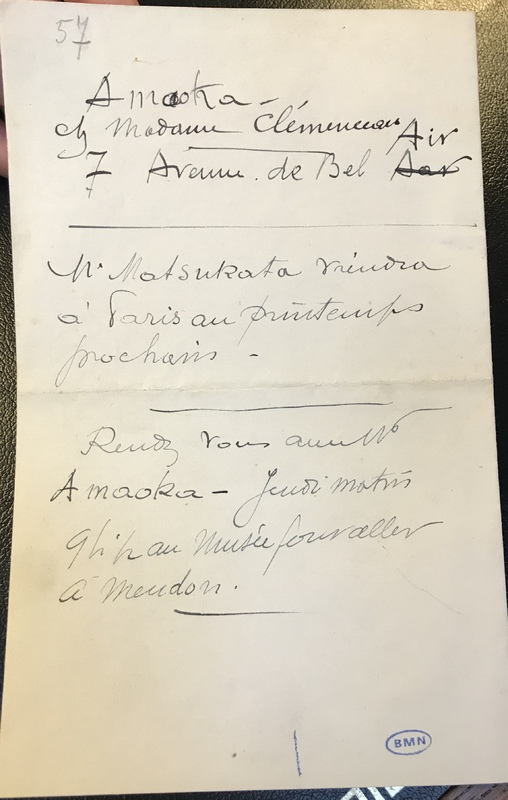 57
Amaoka -
chz Madame Clémenceau
7 Avenue de Bel Air
Mr Matsukata viendra
à Paris au printemps
prochain -
Rendz vous avec Mr
Amaoka - Jeudi matin
9h ½ au Musée pour aller
à Meudon.
BMN